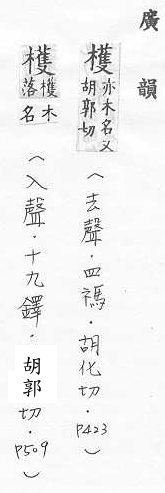 廣韻
檴亦木名又胡郭切（去聲．四禡．胡化切．P423）
檴檴落木名（入聲．十九鐸．胡郭切．P509）